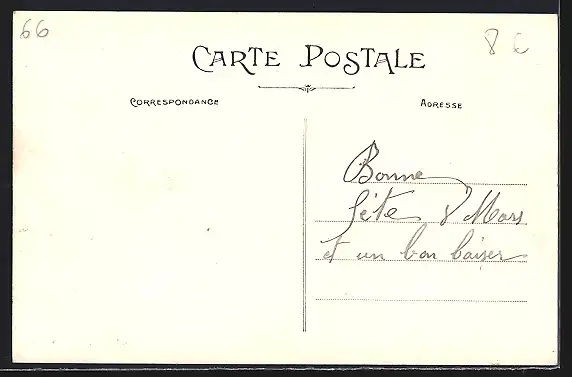 66
8 €
CARTE POSTALE
CORRESPONDANCE
ADRESSE
Bonne
fête 8 Mars
et un bon baiser